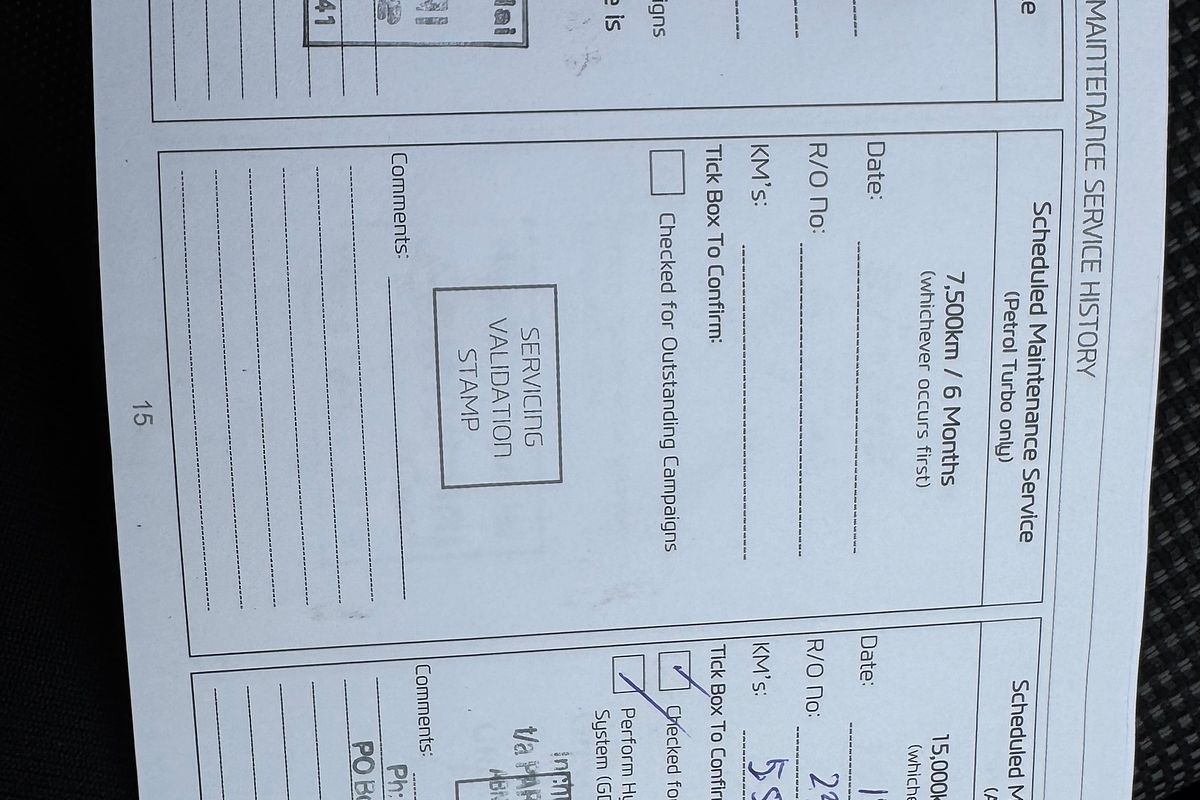 MAINTENANCE SERVICE HISTORY
e
igns
e is
41
Scheduled Maintenance Service
(Petrol Turbo only)
7,500km / 6 Months
(whichever occurs first)
Date:
R/O No:
KM's:
Tick Box To Confirm:
Checked for Outstanding Campaigns
SERVICING
VALIDATION
STAMP
Comments:
15
Scheduled M
(A
15,000k
(whiche
Date:
R/O No:
KM's:
Tick Box To Confir
Checked fo
Perform Hy
System (GD
t/a PAR
Comments:
Ph:
PO Bo